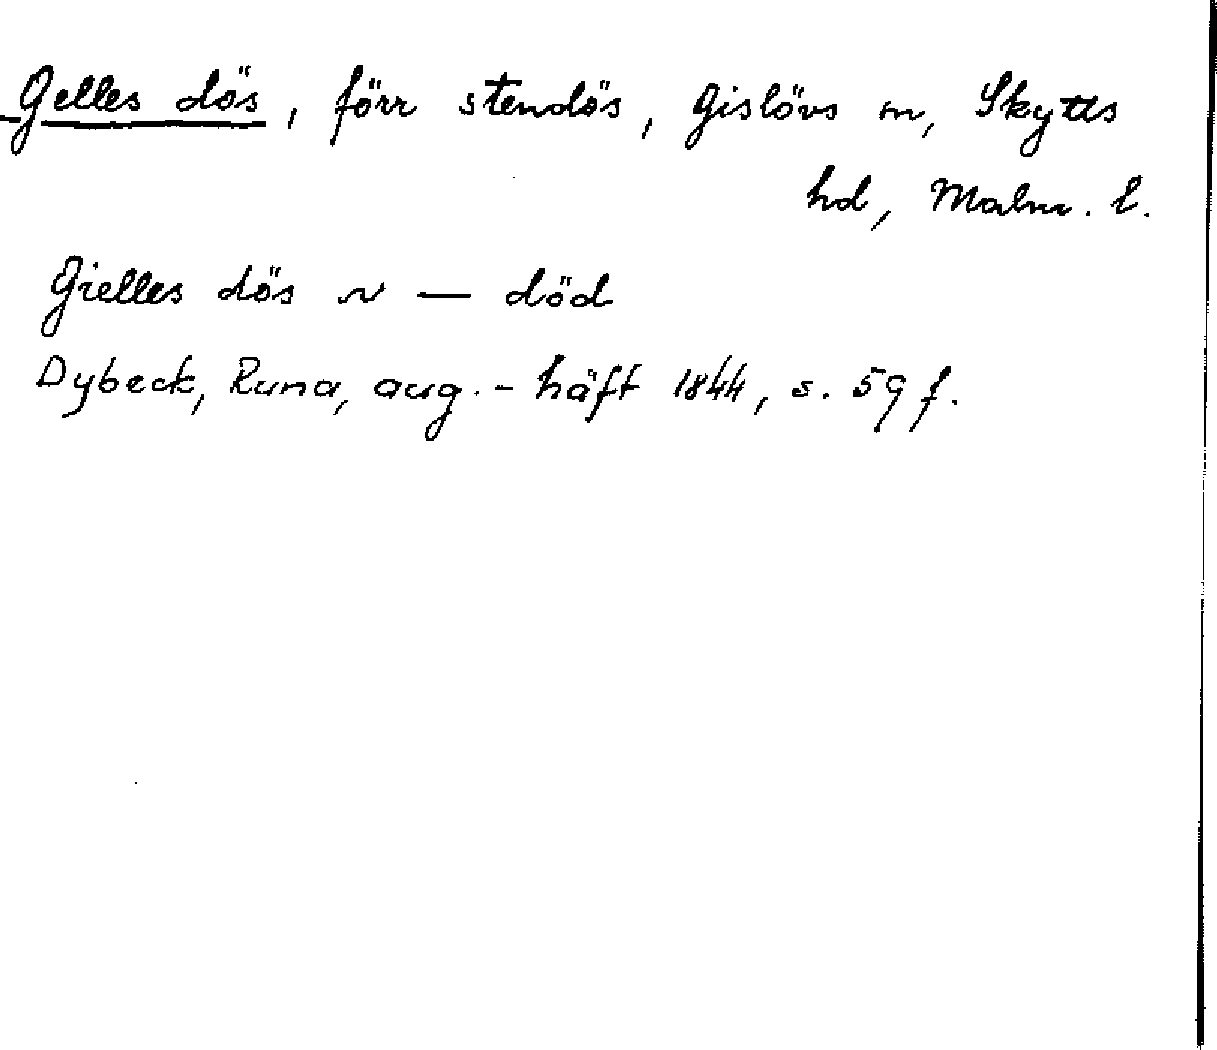 Gelles dös, förr stendös, Gislövs m, Skytts
hd, Malm. l.
Gielles dös ~ — död
Dybeck, Runa, aug.-häft 1844, s. 59 f.